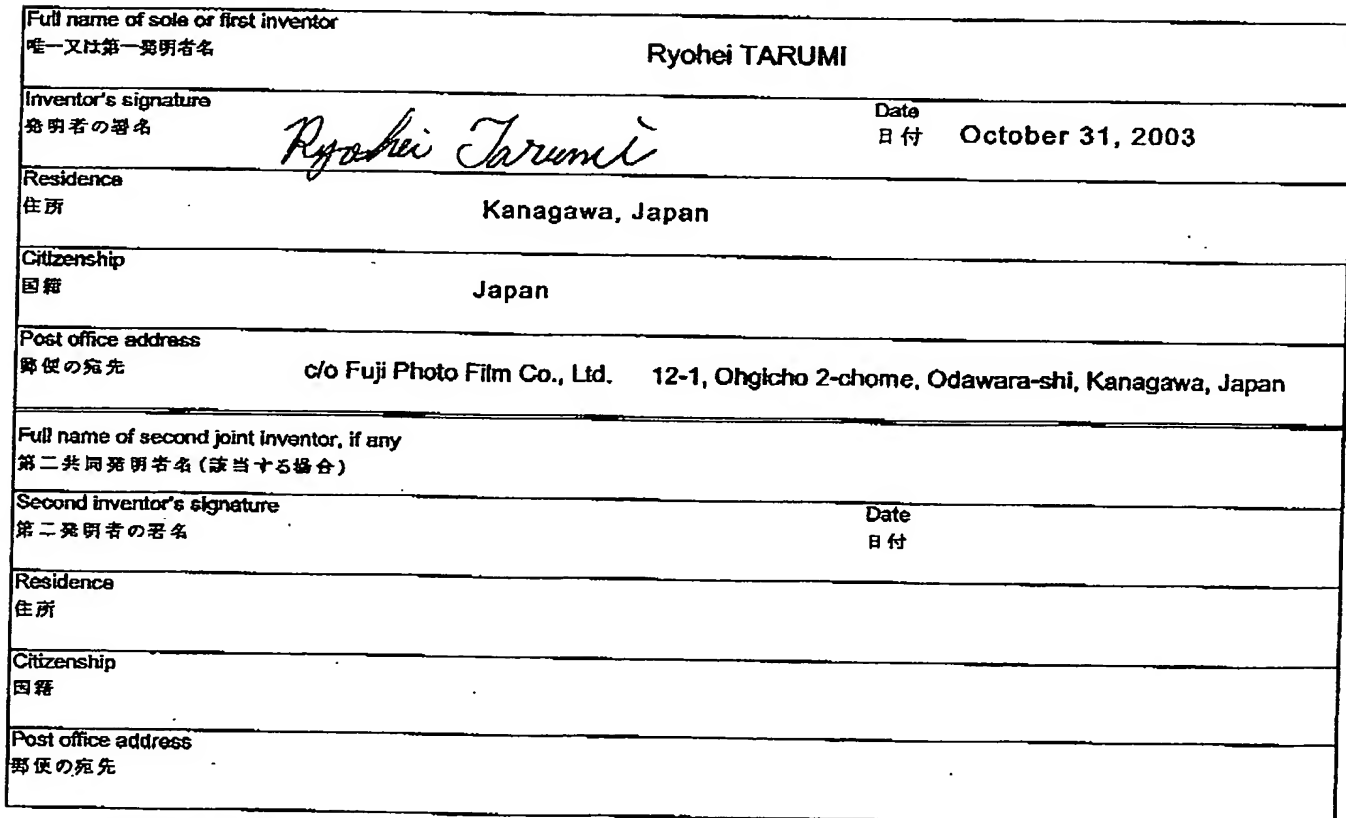 Full name of sole or first inventor
唯一又は第一発明者名
Ryohei TARUMI
Inventor's signature
発明者の署名
Ryohei Tarumi
Date
日付 October 31, 2003
Residence
住所
Kanagawa, Japan
Citizenship
国籍
Japan
Post office address
郵便の宛先
c/o Fuji Photo Film Co., Ltd. 12-1, Ohgicho 2-chome, Odawara-shi, Kanagawa, Japan
Full name of second joint inventor, if any
第二共同発明者名(該当する場合)
Second inventor's signature
第二発明者の署名
Date
日付
Residence
住所
Citizenship
国籍
Post office address
郵便の宛先